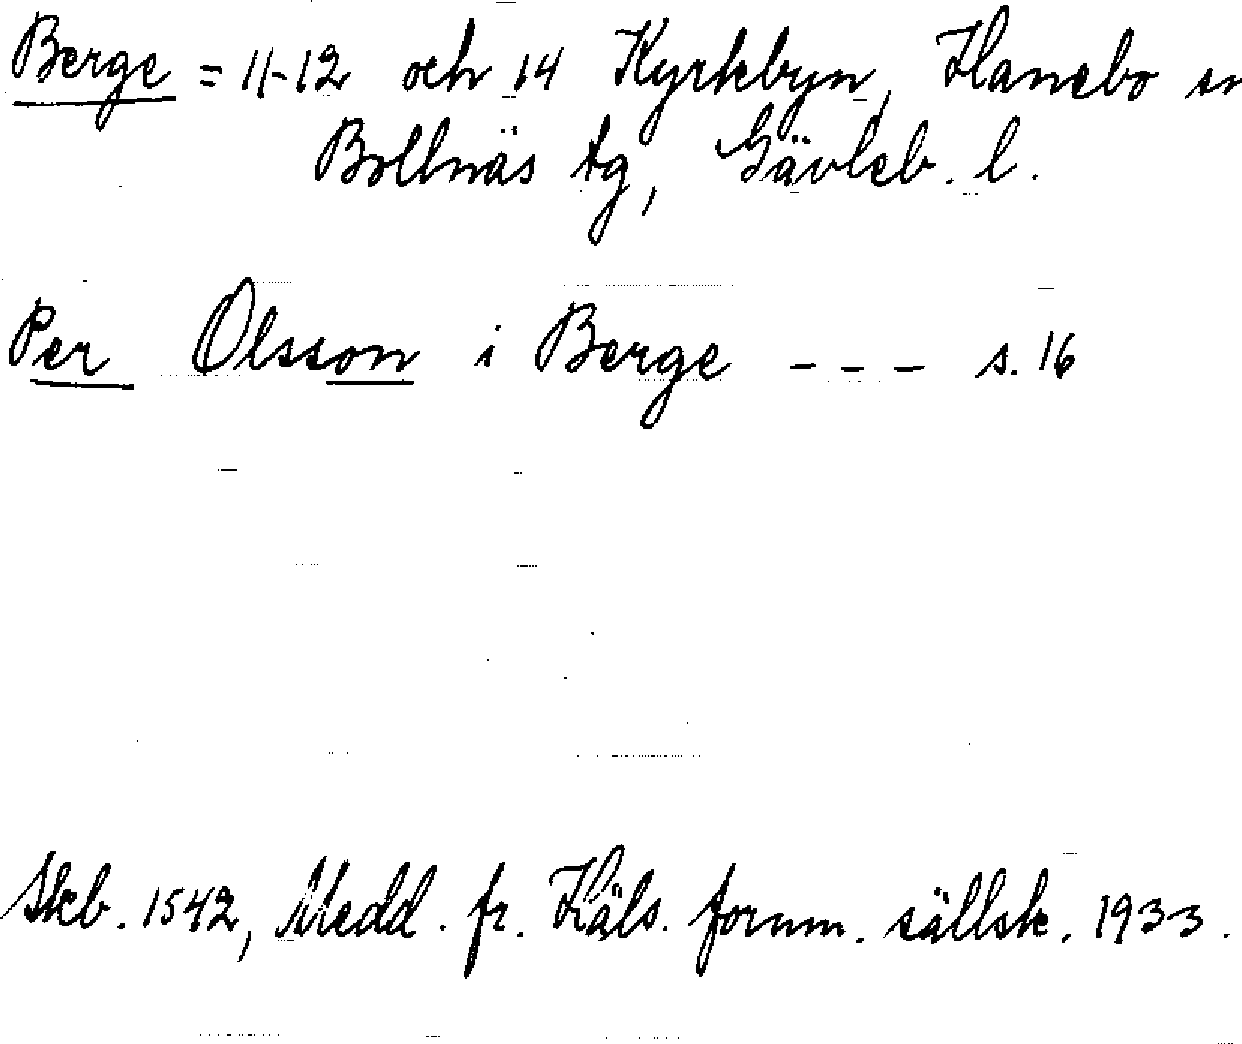 Berge = 11-12 och 14 Kyrkbyn, Hanebo sn
Bollnäs tg, Gävleb. l.
Per Olsson i Berge - - - s. 16
Skb. 1542, Medd. fr. Häls. fornm. sällsk. 1933.